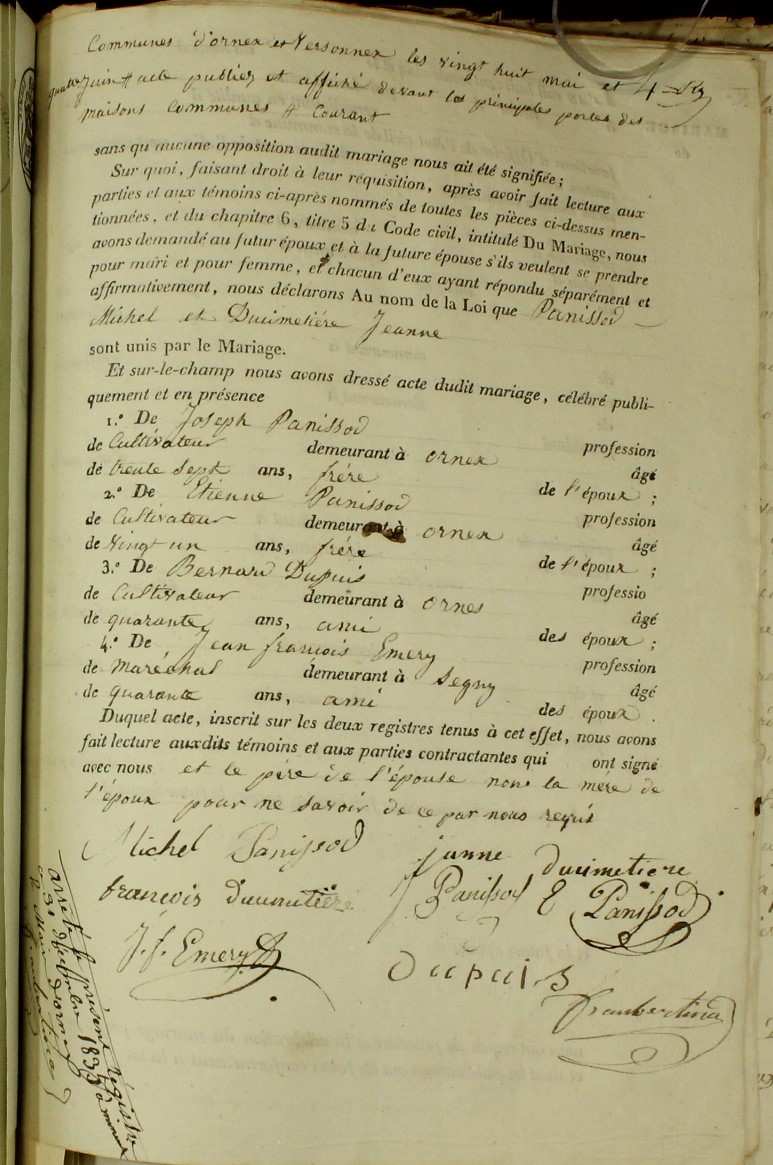 Communes d'ornex et Versonnex les vingt huit mai et 4
quatre juin # acte publiés et affiché devant les principales portes des
maisons communes # Courant
sans qu'aucune opposition audit mariage nous ait été signifiée ;
Sur quoi, faisant droit à leur réquisition, après avoir fait lecture aux
parties et aux témoins ci-après nommés de toutes les pièces ci-dessus men-
tionnées, et du chapitre 6, titre 5 du Code civil, intitulé Du Mariage, nous
avons demandé au futur époux et à la future épouse s'ils veulent se prendre
pour mari et pour femme, et chacun d'eux ayant répondu séparément et
affirmativement, nous déclarons Au nom de la Loi que Panissod
Michel et Ducimetiére Jeanne
sont unis par le Mariage.
Et sur-le-champ nous avons dressé acte dudit mariage, célébré publi-
quement et en présence
1.° De Joseph Panissod
de Cultivateur demeurant à ornex profession
de trente sept ans, frére âgé
2.° De Etienne Panissod de l'époux ;
de Cultivateur demeurant à ornex profession
de vingt un ans, frére âgé
3.° De Bernard Dupuis de l'époux ;
de Cultivateur demeurant à ornex professio
de quarante ans, ami âgé
4.° De Jean françois Emery des époux ;
de Maréchal demeurant à Segny profession
de quarante ans, ami âgé
des époux .
Duquel acte, inscrit sur les deux registres tenus à cet effet, nous avons
fait lecture auxdits témoins et aux parties contractantes qui ont signé
avec nous et le pére de l'épouse non la mére de
l'époux pour ne savoir de ce par nous requis
Michel Panissod
janne ducimetiere
françois ducimetiére
J Panissod E Panissod
J. f. Emery
Dupuis
arrêté le présent régistre